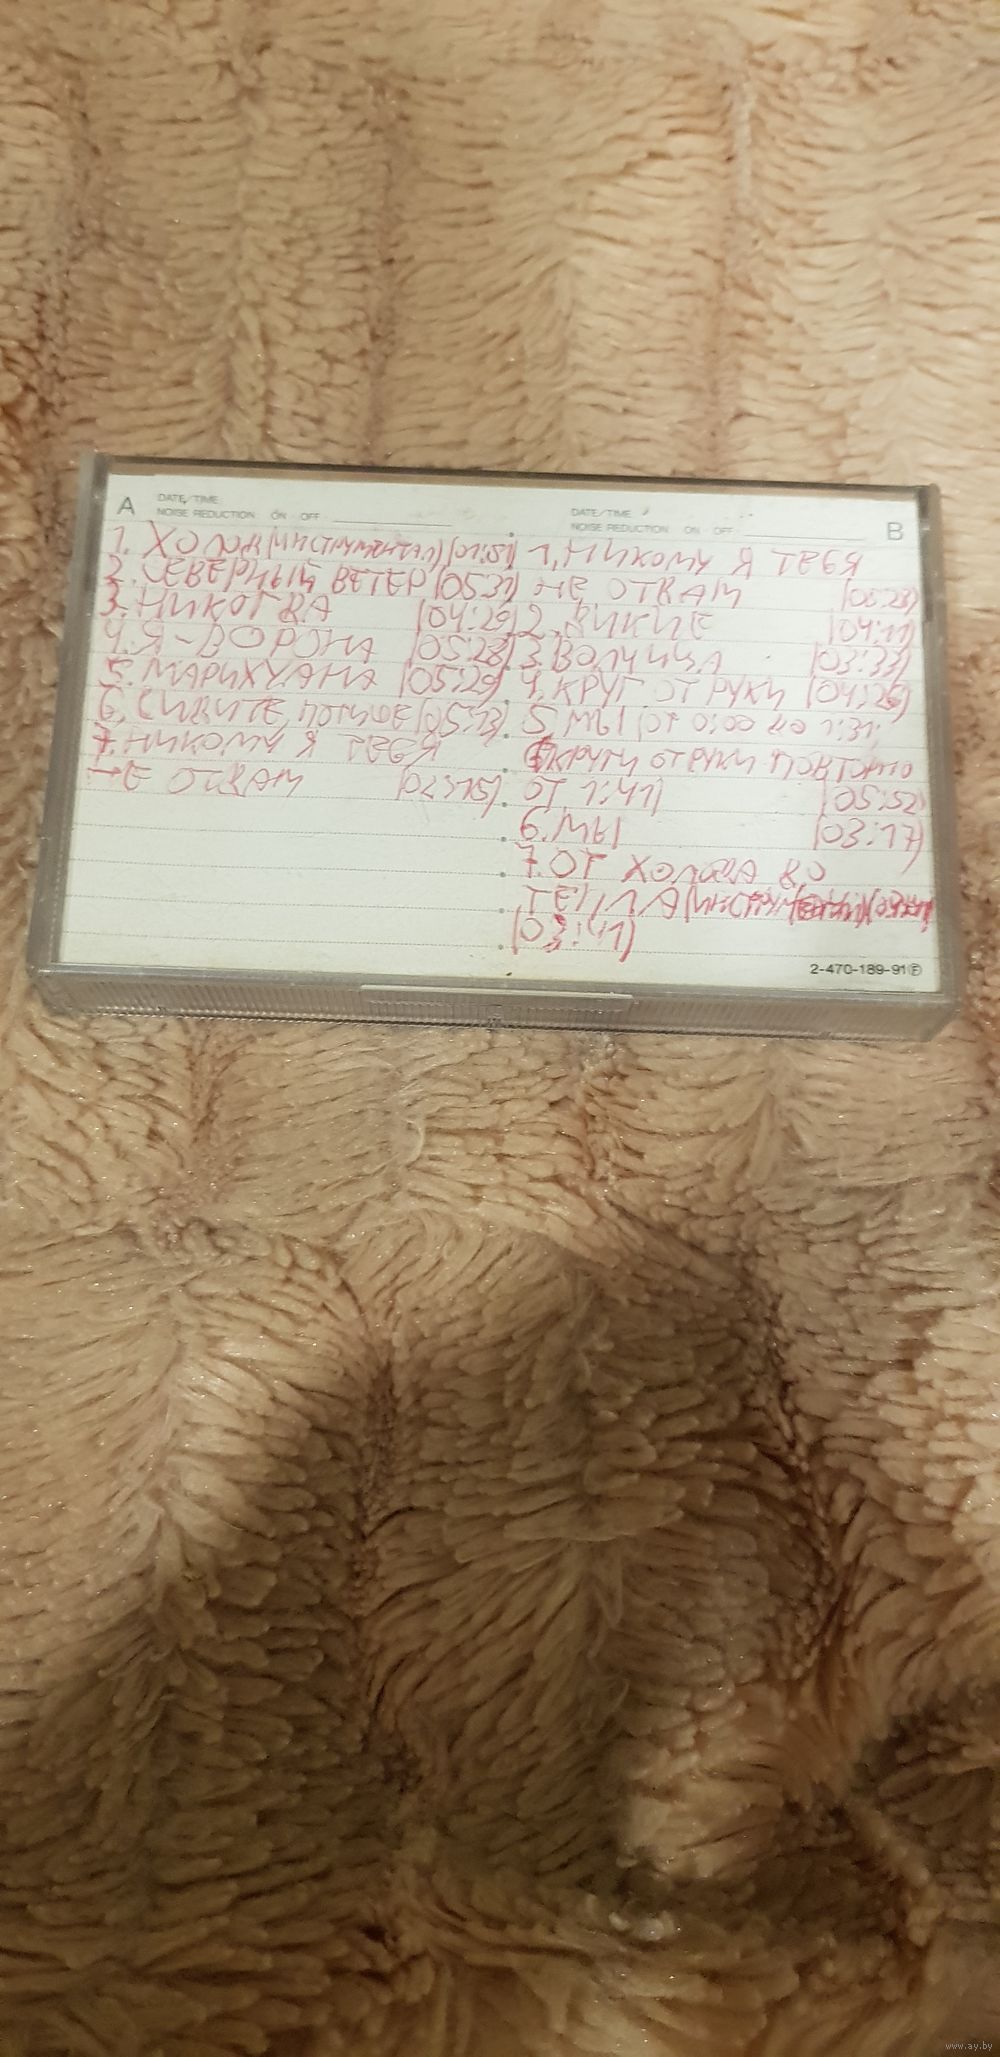 A
DATE/TIME
NOISE REDUCTION ON OFF
1. ХОЛОД (ИНСТРУМЕНТАЛ) (01:51)
2. СЕВЕРНЫЙ ВЕТЕР (05:31)
3. НИКОГДА (04:29)
4. Я - ВОРОНА (05:28)
5. МАРИХУАНА (05:29)
6. СИДИТЕ, ПОТИШЕ (05:13)
7. НИКОМУ Я ТЕБЯ
НЕ ОТДАМ
DATE/TIME
NOISE REDUCTION ON OFF
B
1. НИКОМУ Я ТЕБЯ
НЕ ОТДАМ (05:23)
2. ДИКИЕ (04:11)
3. ВОЛЧИЦА (03:33)
4. КРУГ ОТ РУКИ (04:29)
5. МЫ (ОТ 0:00 ДО 1:31;
КРУГИ ОТ РУКИ ПОВТОРНО
ОТ 1:41) (05:52)
6. МЫ (03:17)
7. ОТ ХОЛОДА ДО
ТЕПЛА
(03:41)
2-470-189-91 Ⓕ
www.ay.by